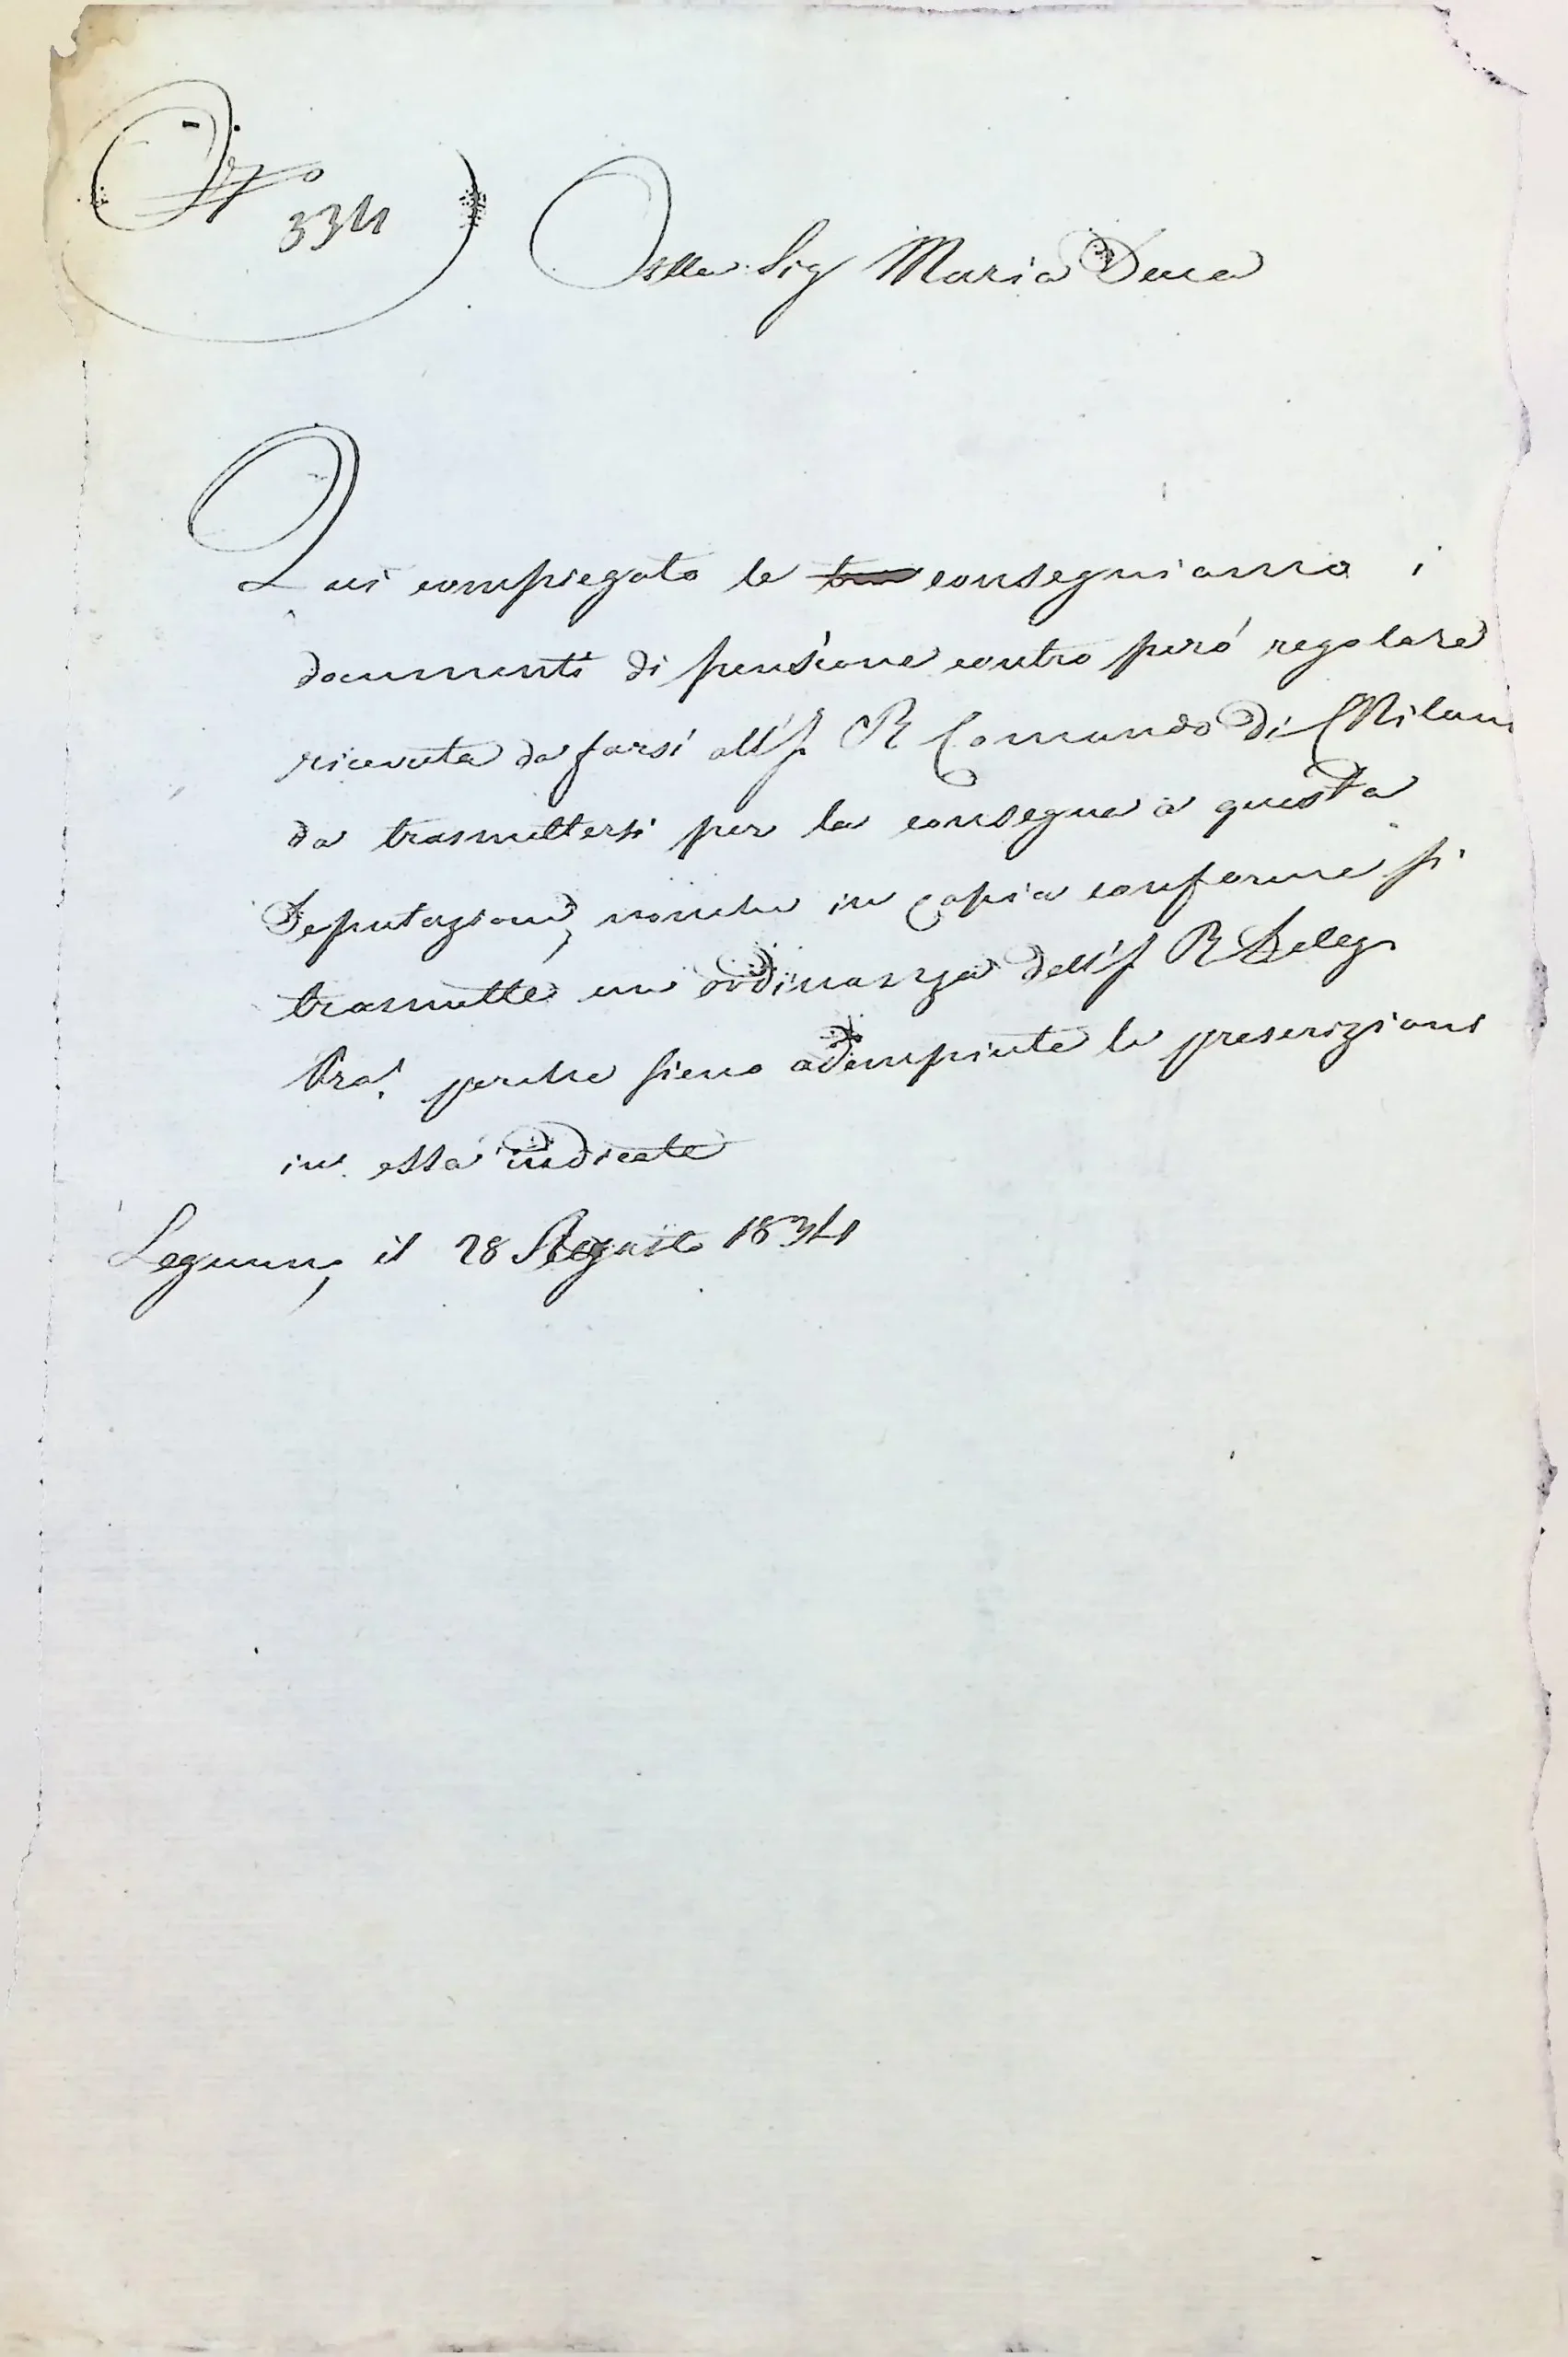 N.o
334
Alla Sig Maria Duca
Qui compiegato le consegniamo i
documenti di pensione contro però regolare
ricevuta da farsi all'I. R Comando di Milano
da trasmettersi per la consegna a questa
Deputazione, nonche in copia conforme si
trasmette un ordinanza dell'I R Deleg
Pral. perche sieno adempiute le prescrizioni
in essa indicate
il 28 Agosto 1834